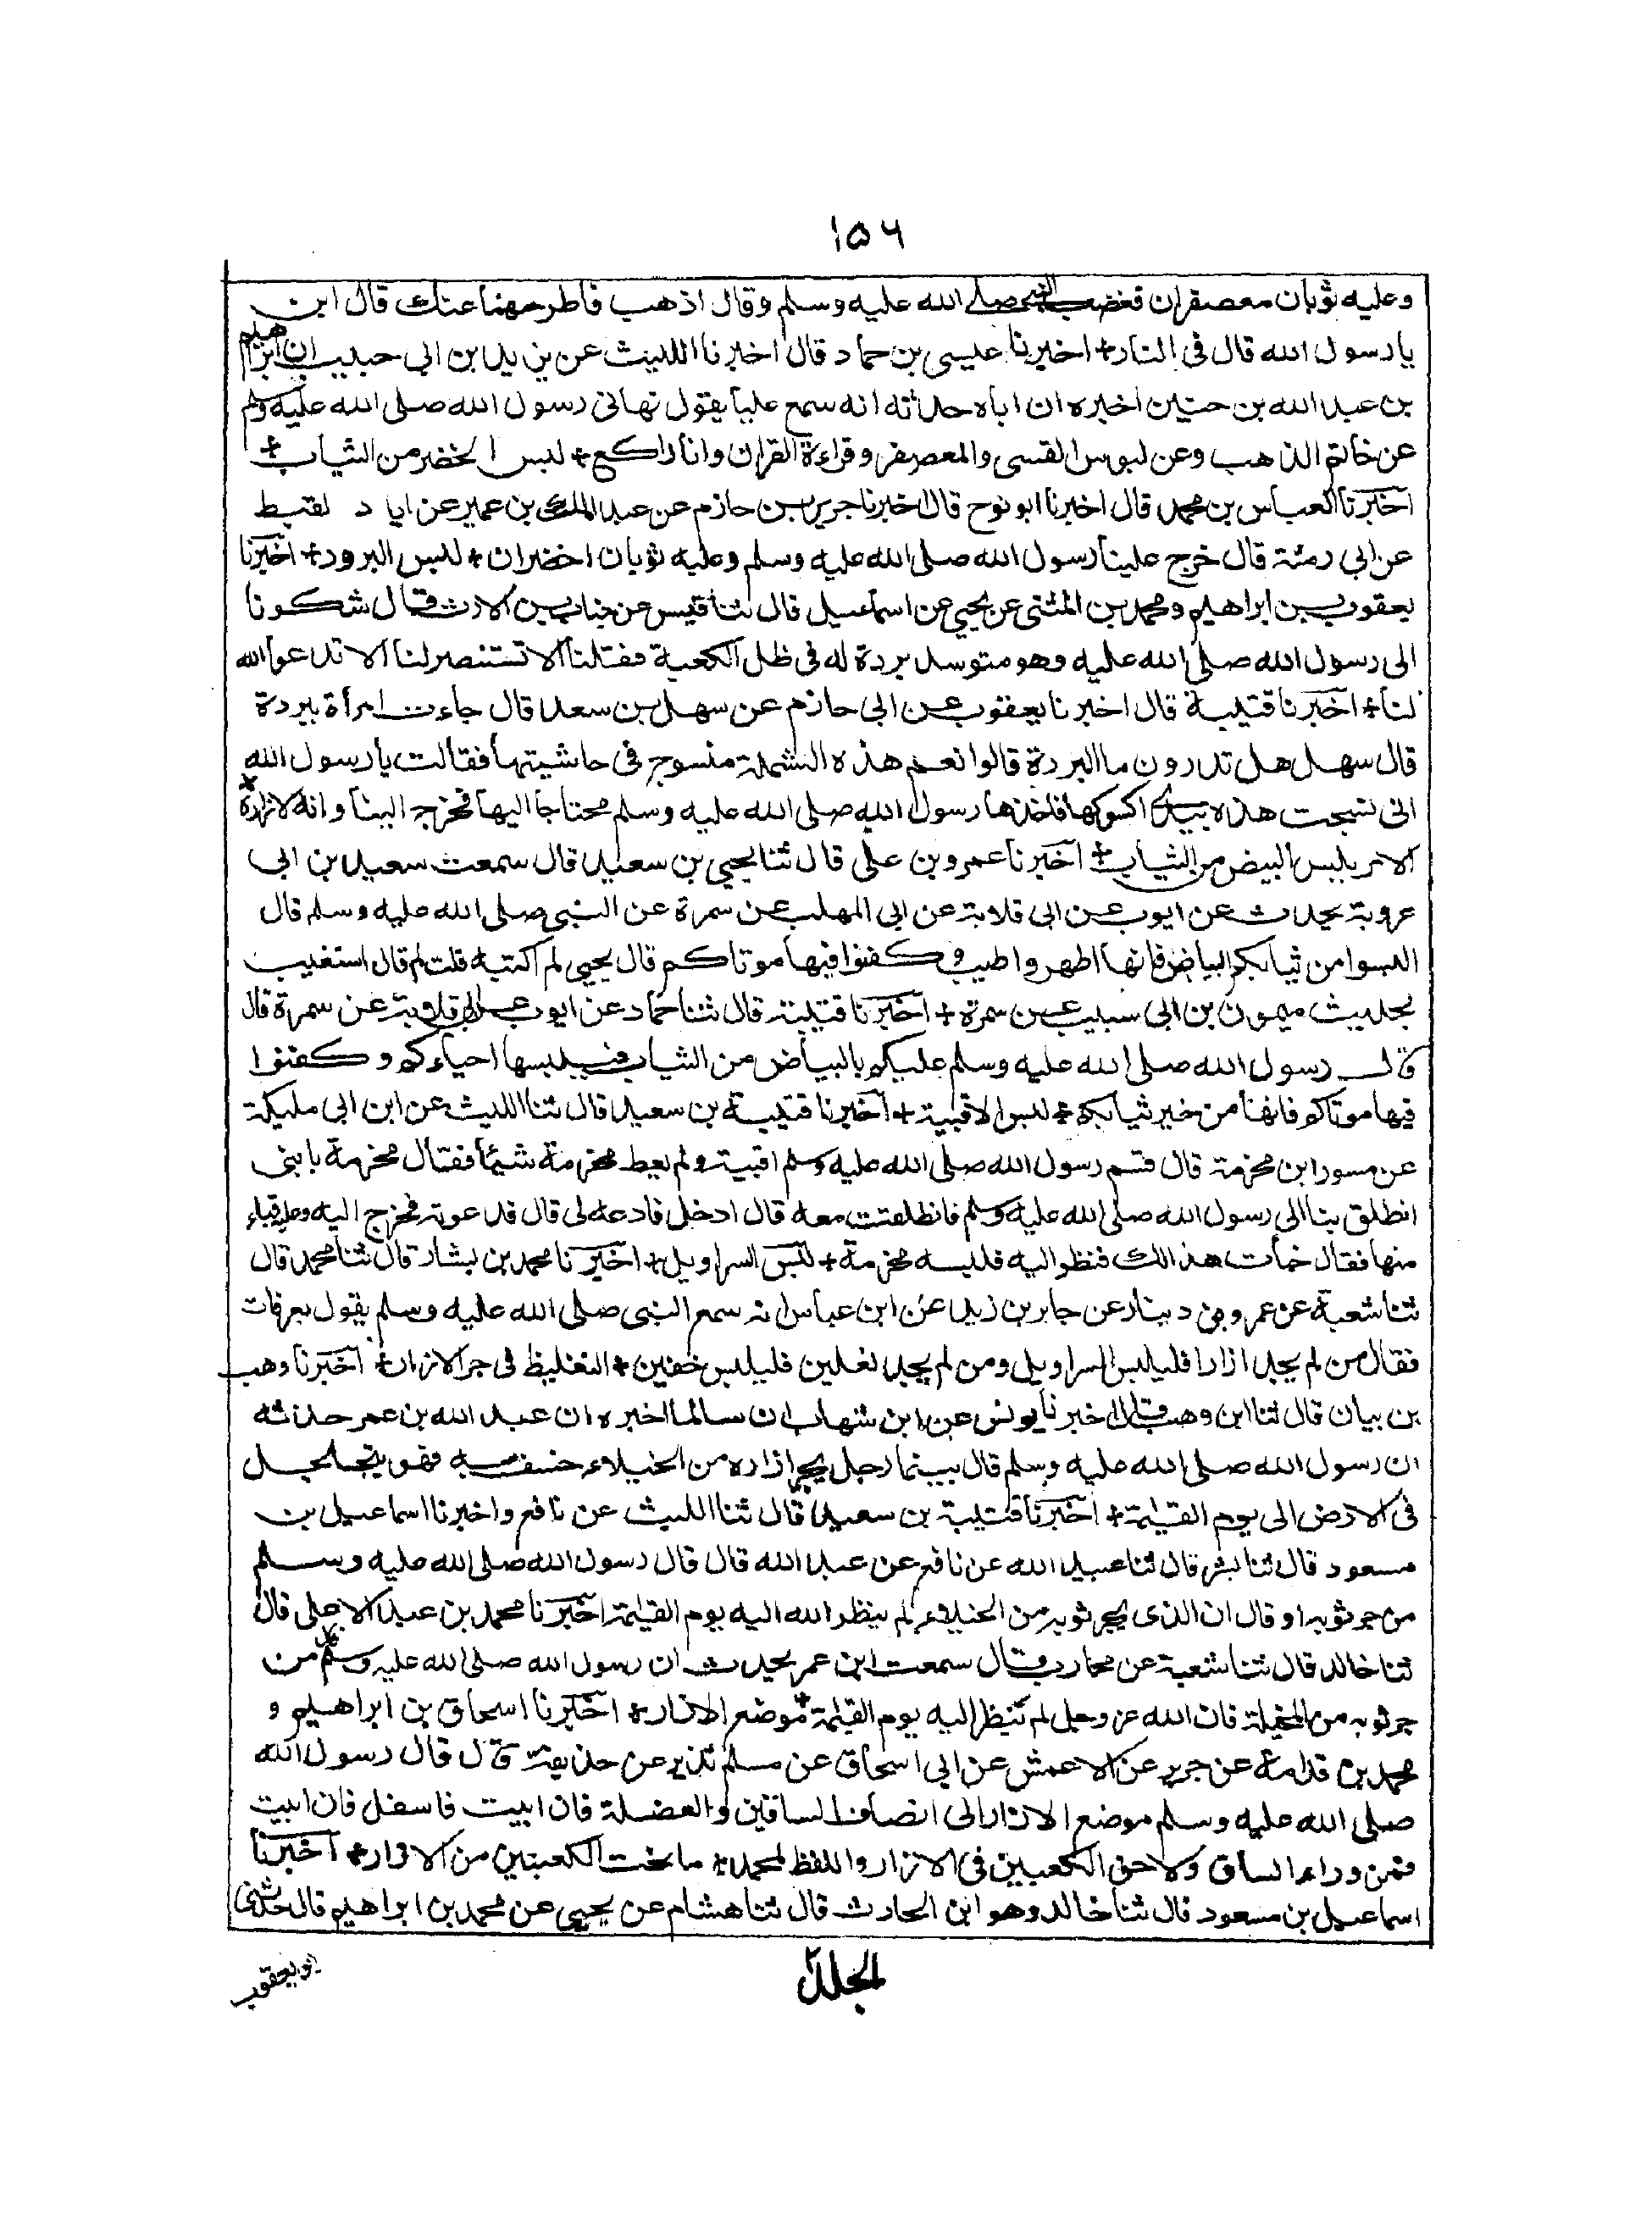 ١٥٦
وعليه ثوبان معصفران فغضب النبى صلى الله عليه وسلم وقال اذهب فاطرحهما عنك قال اين
يا رسول الله قال فى النار+ اخبرنا عيسى بن حماد قال اخبرنا الليث عن يزيد بن ابى حبيب ان ابراهيم
بن عبد الله بن حنين اخبره ان اباه حدثه انه سمع عليا يقول نهانى رسول الله صلى الله عليه وسلم
عن خاتم الذهب وعن لبوس القسى والمعصفر وقراءة القران وانا راكع+ لبس الخضر من الثياب+
اخبرنا العباس بن محمد قال اخبرنا ابو نوح قال اخبرنا جرير بن حازم عن عبد الملك بن عمير عن اياد لقيط
عن ابى رمثة قال خرج علينا رسول الله صلى الله عليه وسلم وعليه ثوبان اخضران+ لبس البرود+ اخبرنا
يعقوب بن ابراهيم ومحمد بن المثنى عن يحيى عن اسماعيل قال ثنا قيس عن خباب بن الارت قال شكونا
الى رسول الله صلى الله عليه وهو متوسد بردة له فى ظل الكعبة فقتلنا الا تستنصر لنا الا تدعوا الله
لنا+ اخبرنا قتيبة قال اخبرنا يعقوب عن ابى حازم عن سهل بن سعد قال جاءت امرأة ببردة
قال سهل هل تدرون ما البردة قالوا نعم هذه الشملة منسوج فى حاشيتها فقالت يا رسول الله
انى نسجت هذه بيدى اكسوكها فاخذها رسول الله صلى الله عليه وسلم محتاجا اليها فخرج الينا وانها لازاره
الامر بلبس البيض من الثياب+ اخبرنا عمرو بن على قال ثنا يحيى بن سعيد قال سمعت سعيد بن ابى
عروبة يحدث عن ايوب عن ابى قلابة عن ابى المهلب عن سمرة عن النبى صلى الله عليه وسلم قال
البسوا من ثيابكم البياض فانها اطهر واطيب وكفنوا فيها موتاكم قال يحيى لم اكتبه قلت لم قال استغنيت
بحديث ميمون بن ابى شبيب عن سمرة+ اخبرنا قتيبة قال ثنا حماد عن ايوب عن ابى قلابة عن سمرة قال
قال رسول الله صلى الله عليه وسلم عليكم بالبياض من الثياب فيلبسها احياءكم وكفنوا
فيها موتاكم فانها من خير ثيابكم+ لبس الاقبية+ اخبرنا قتيبة بن سعيد قال ثنا الليث عن ابن ابى مليكة
عن مسور ابن مخرمة قال قسم رسول الله صلى الله عليه وسلم اقبية ولم يعط مخرمة شيئا فقال مخرمة يا بنى
انطلق بنا الى رسول الله صلى الله عليه وسلم فانطلقت معه قال ادخل فادعه لى قال فدعوته فخرج اليه وعليه قباء
منها فقال خبأت هذا لك فنظر اليه فلبسه مخرمة+ لبس السراويل+ اخبرنا محمد بن بشار قال ثنا محمد قال
ثنا شعبة عن عمرو بن دينار عن جابر بن زيد عن ابن عباس انه سمع النبى صلى الله عليه وسلم يقول بعرفات
فقال من لم يجد ازارا فليلبس السراويل ومن لم يجد نعلين فليلبس خفين+ التغليظ فى جر الازار+ اخبرنا وهب
بن بيان قال ثنا ابن وهب قال اخبرنا يونس عن ابن شهاب ان سالما اخبره ان عبد الله بن عمر حدثه
ان رسول الله صلى الله عليه وسلم قال بينما رجل يجر ازاره من الخيلاء خسف به فهو يتجلجل
فى الارض الى يوم القيمة+ اخبرنا قتيبة بن سعيد قال ثنا الليث عن نافع واخبرنا اسماعيل بن
مسعود قال ثنا بشر قال ثنا عبيد الله عن نافع عن عبد الله قال قال رسول الله صلى الله عليه وسلم
من جر ثوبه او قال ان الذى يجر ثوبه من الخيلاء لم ينظر الله اليه يوم القيمة اخبرنا محمد بن عبد الاعلى قال
ثنا خالد قال ثنا شعبة عن محارب قال سمعت ابن عمر يحدث ان رسول الله صلى الله عليه وسلم قال من
جر ثوبه من المخيلة فان الله عز وجل لم ينظر اليه يوم القيمة+ موضع الازار+ اخبرنا اسحاق بن ابراهيم و
محمد بن قدامة عن جرير عن الاعمش عن ابى اسحاق عن مسلم نذير عن حذيفة قال قال رسول الله
صلى الله عليه وسلم موضع الازار الى انصاف الساقين والعضلة فان ابيت فاسفل فان ابيت
فمن وراء الساق ولا حق الكعبين فى الازار واللفظ لمحمد+ ما تحت الكعبين من الازار+ اخبرنا
اسماعيل بن مسعود قال ثنا خالد وهو ابن الحارث قال ثنا هشام عن يحيى عن محمد بن ابراهيم قال حدثنى
الجلد٢
ابو يعقوب